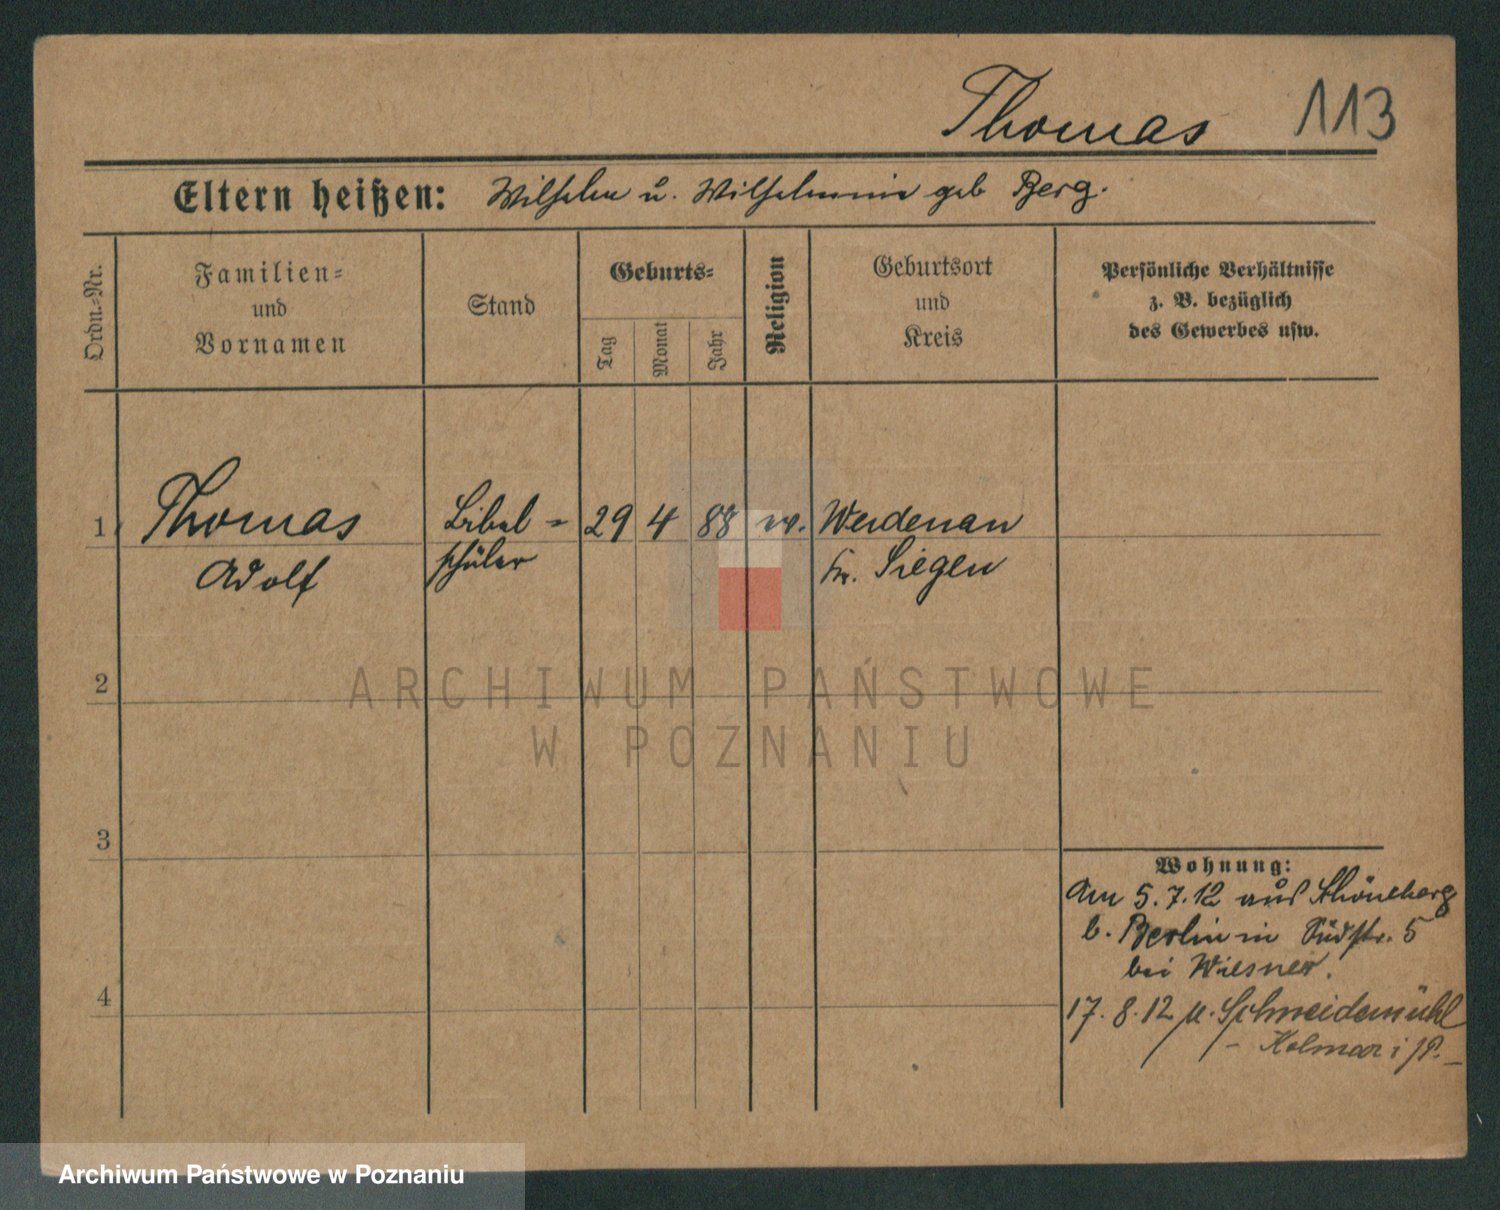 Thomas 113
Eltern heißen: Wilhelm u. Wilhelmine geb Berg.
Ordn.-Nr.
Familien-
und
Vornamen
Stand
Geburts-
Tag
Monat
Jahr
Religion
Geburtsort
und
Kreis
Persönliche Verhältnisse
z. B. bezüglich
des Gewerbes usw.
1 Thomas Bibel- 29 4 88 Weidenau
Adolf schüler Kr. Siegen
2
3
4
Wohnung:
Am 5.7.12 aus Schöneberg
b. Berlin in Südstr. 5
bei Wiesner.
17.8.12 n. Schneidemühl
- Kolmar i/P. -
ARCHIWUM PAŃSTWOWE
W POZNANIU
Archiwum Państwowe w Poznaniu